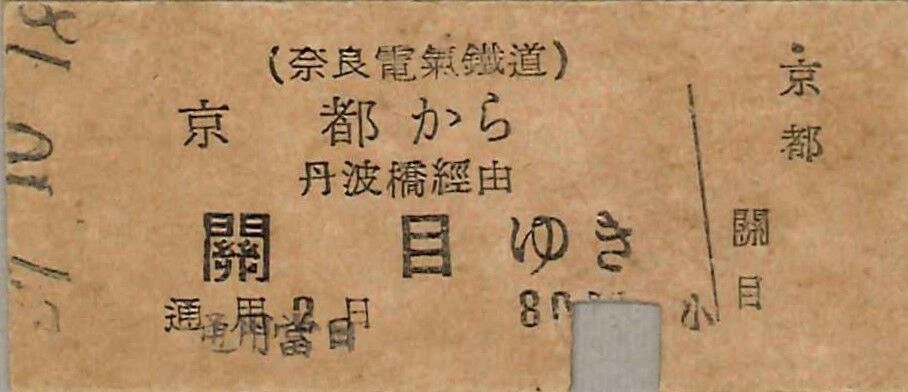 (奈良電氣鐵道)
京都から
丹波橋經由
關目ゆき
通用2日
通用當日
80
小
京都
關目
10 18